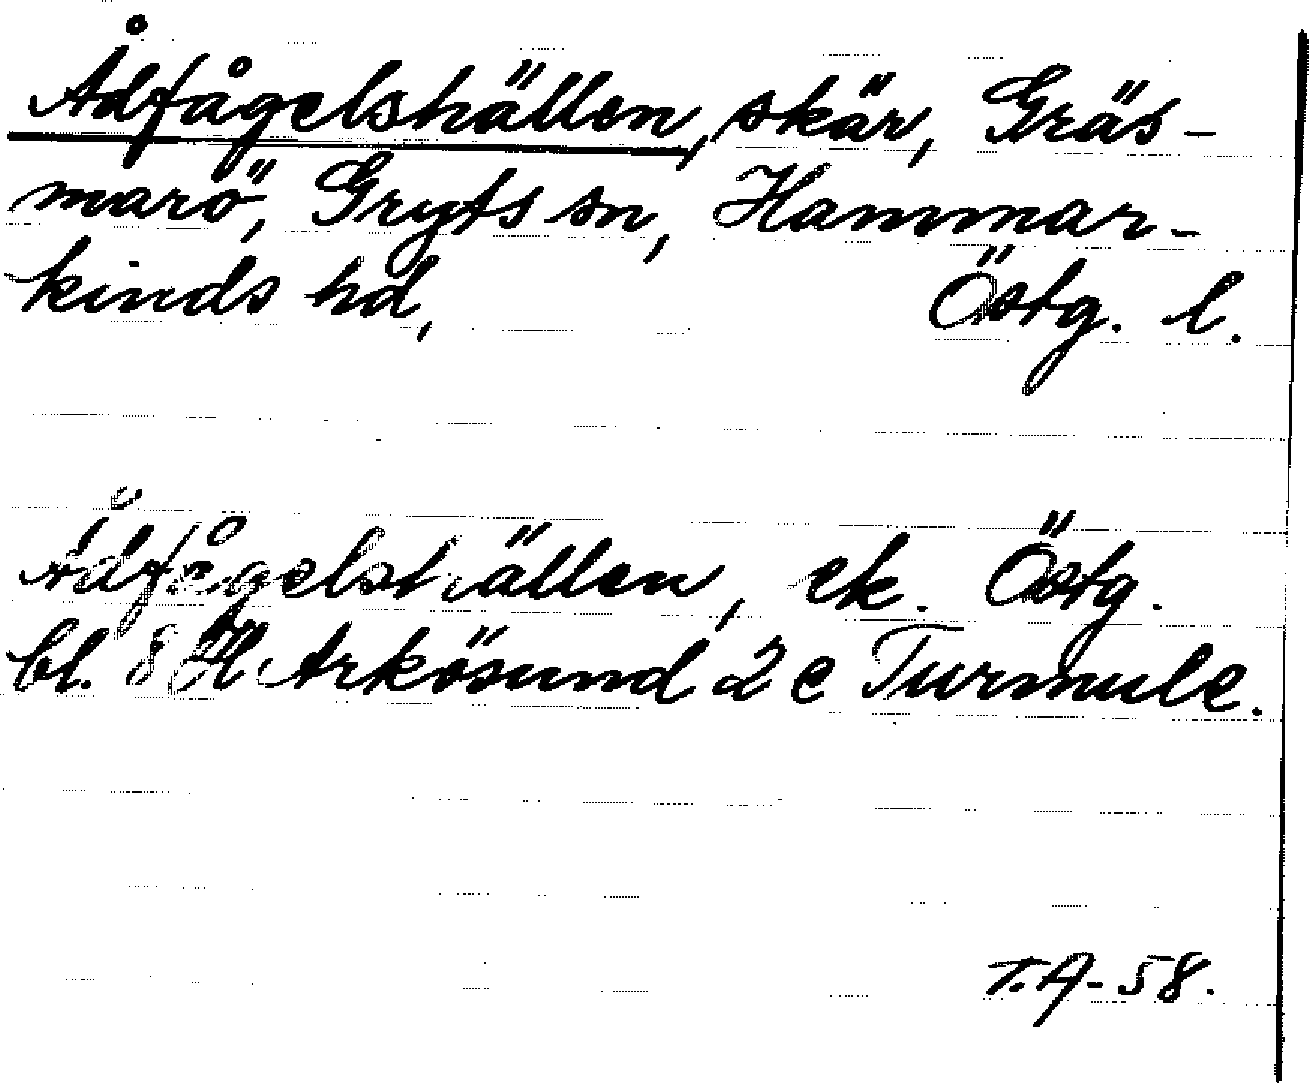 Ådfågelshällen, skär, Gräs-
marö, Gryts sn, Hammar-
kinds hd, Östg. l.
Ådfågelshällen, ek. Östg.
bl. 8 H Arkösund 2 e Turmule.
T.A-58.